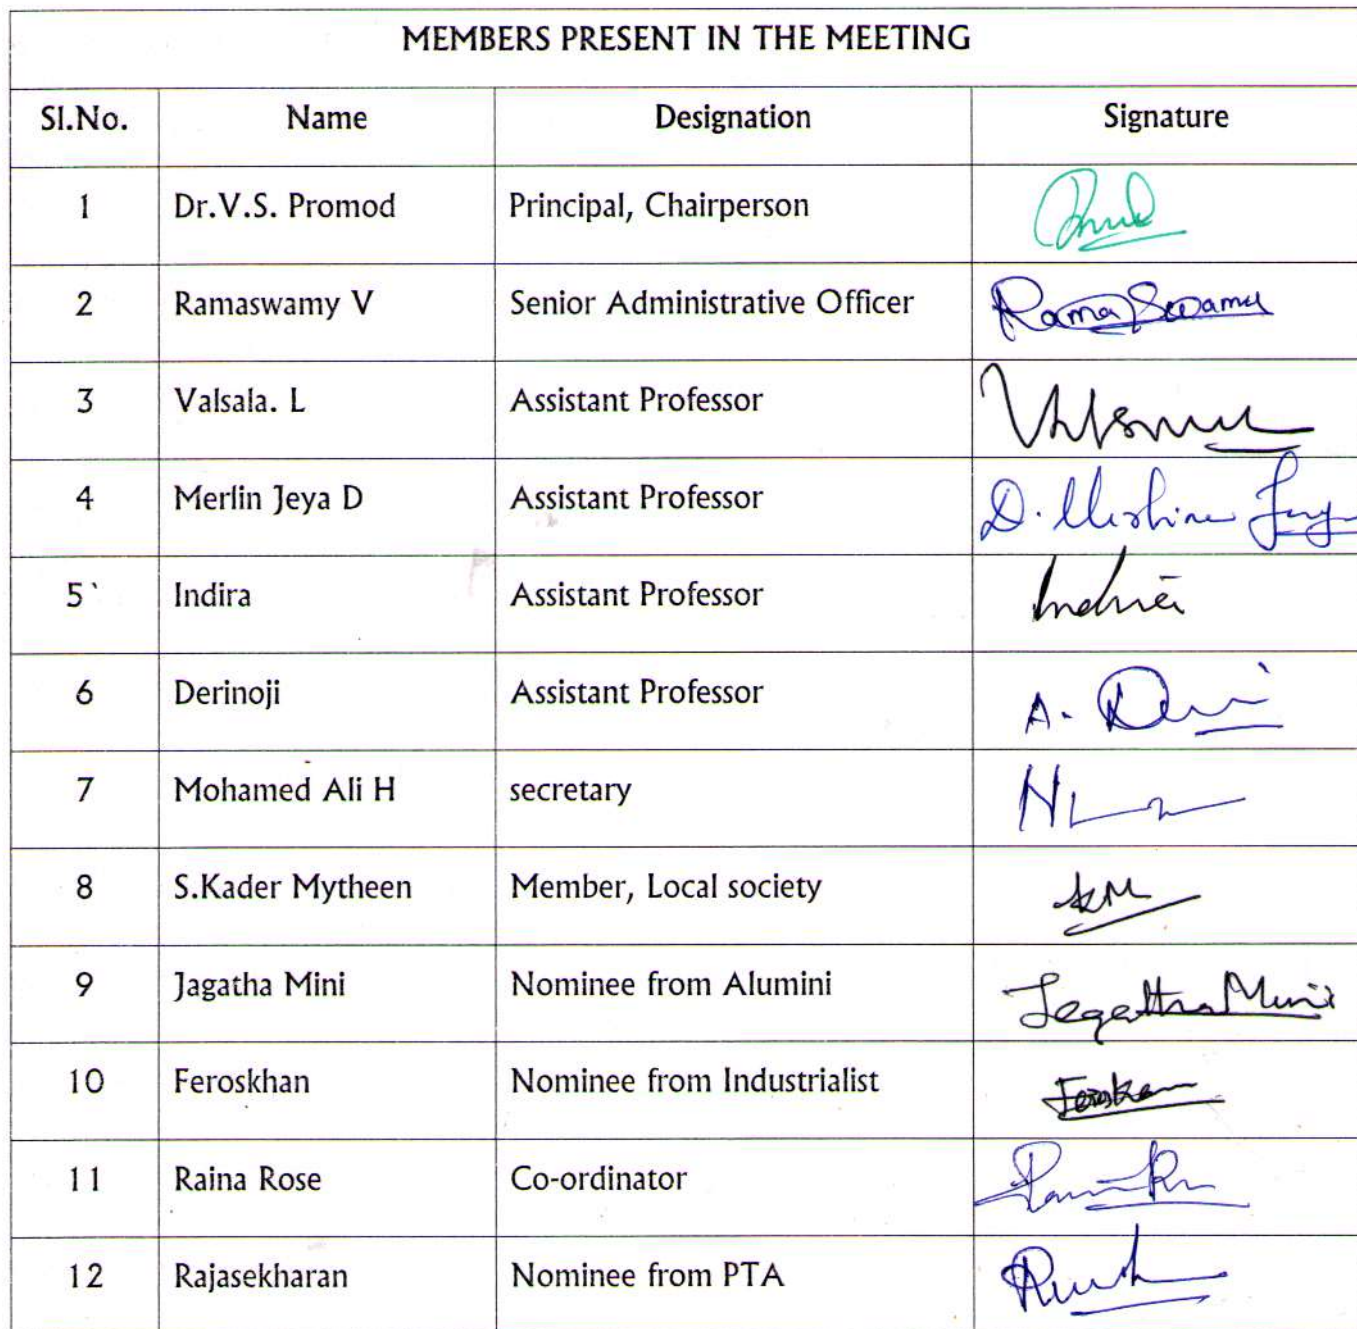 MEMBERS PRESENT IN THE MEETING
Sl.No. Name Designation Signature
1 Dr.V.S. Promod Principal, Chairperson
2 Ramaswamy V Senior Administrative Officer Rama Swamy
3 Valsala. L Assistant Professor
4 Merlin Jeya D Assistant Professor
5 Indira Assistant Professor Indira
6 Derinoji Assistant Professor
7 Mohamed Ali H secretary
8 S.Kader Mytheen Member, Local society KM
9 Jagatha Mini Nominee from Alumini Jegatha Mini
10 Feroskhan Nominee from Industrialist
11 Raina Rose Co-ordinator
12 Rajasekharan Nominee from PTA